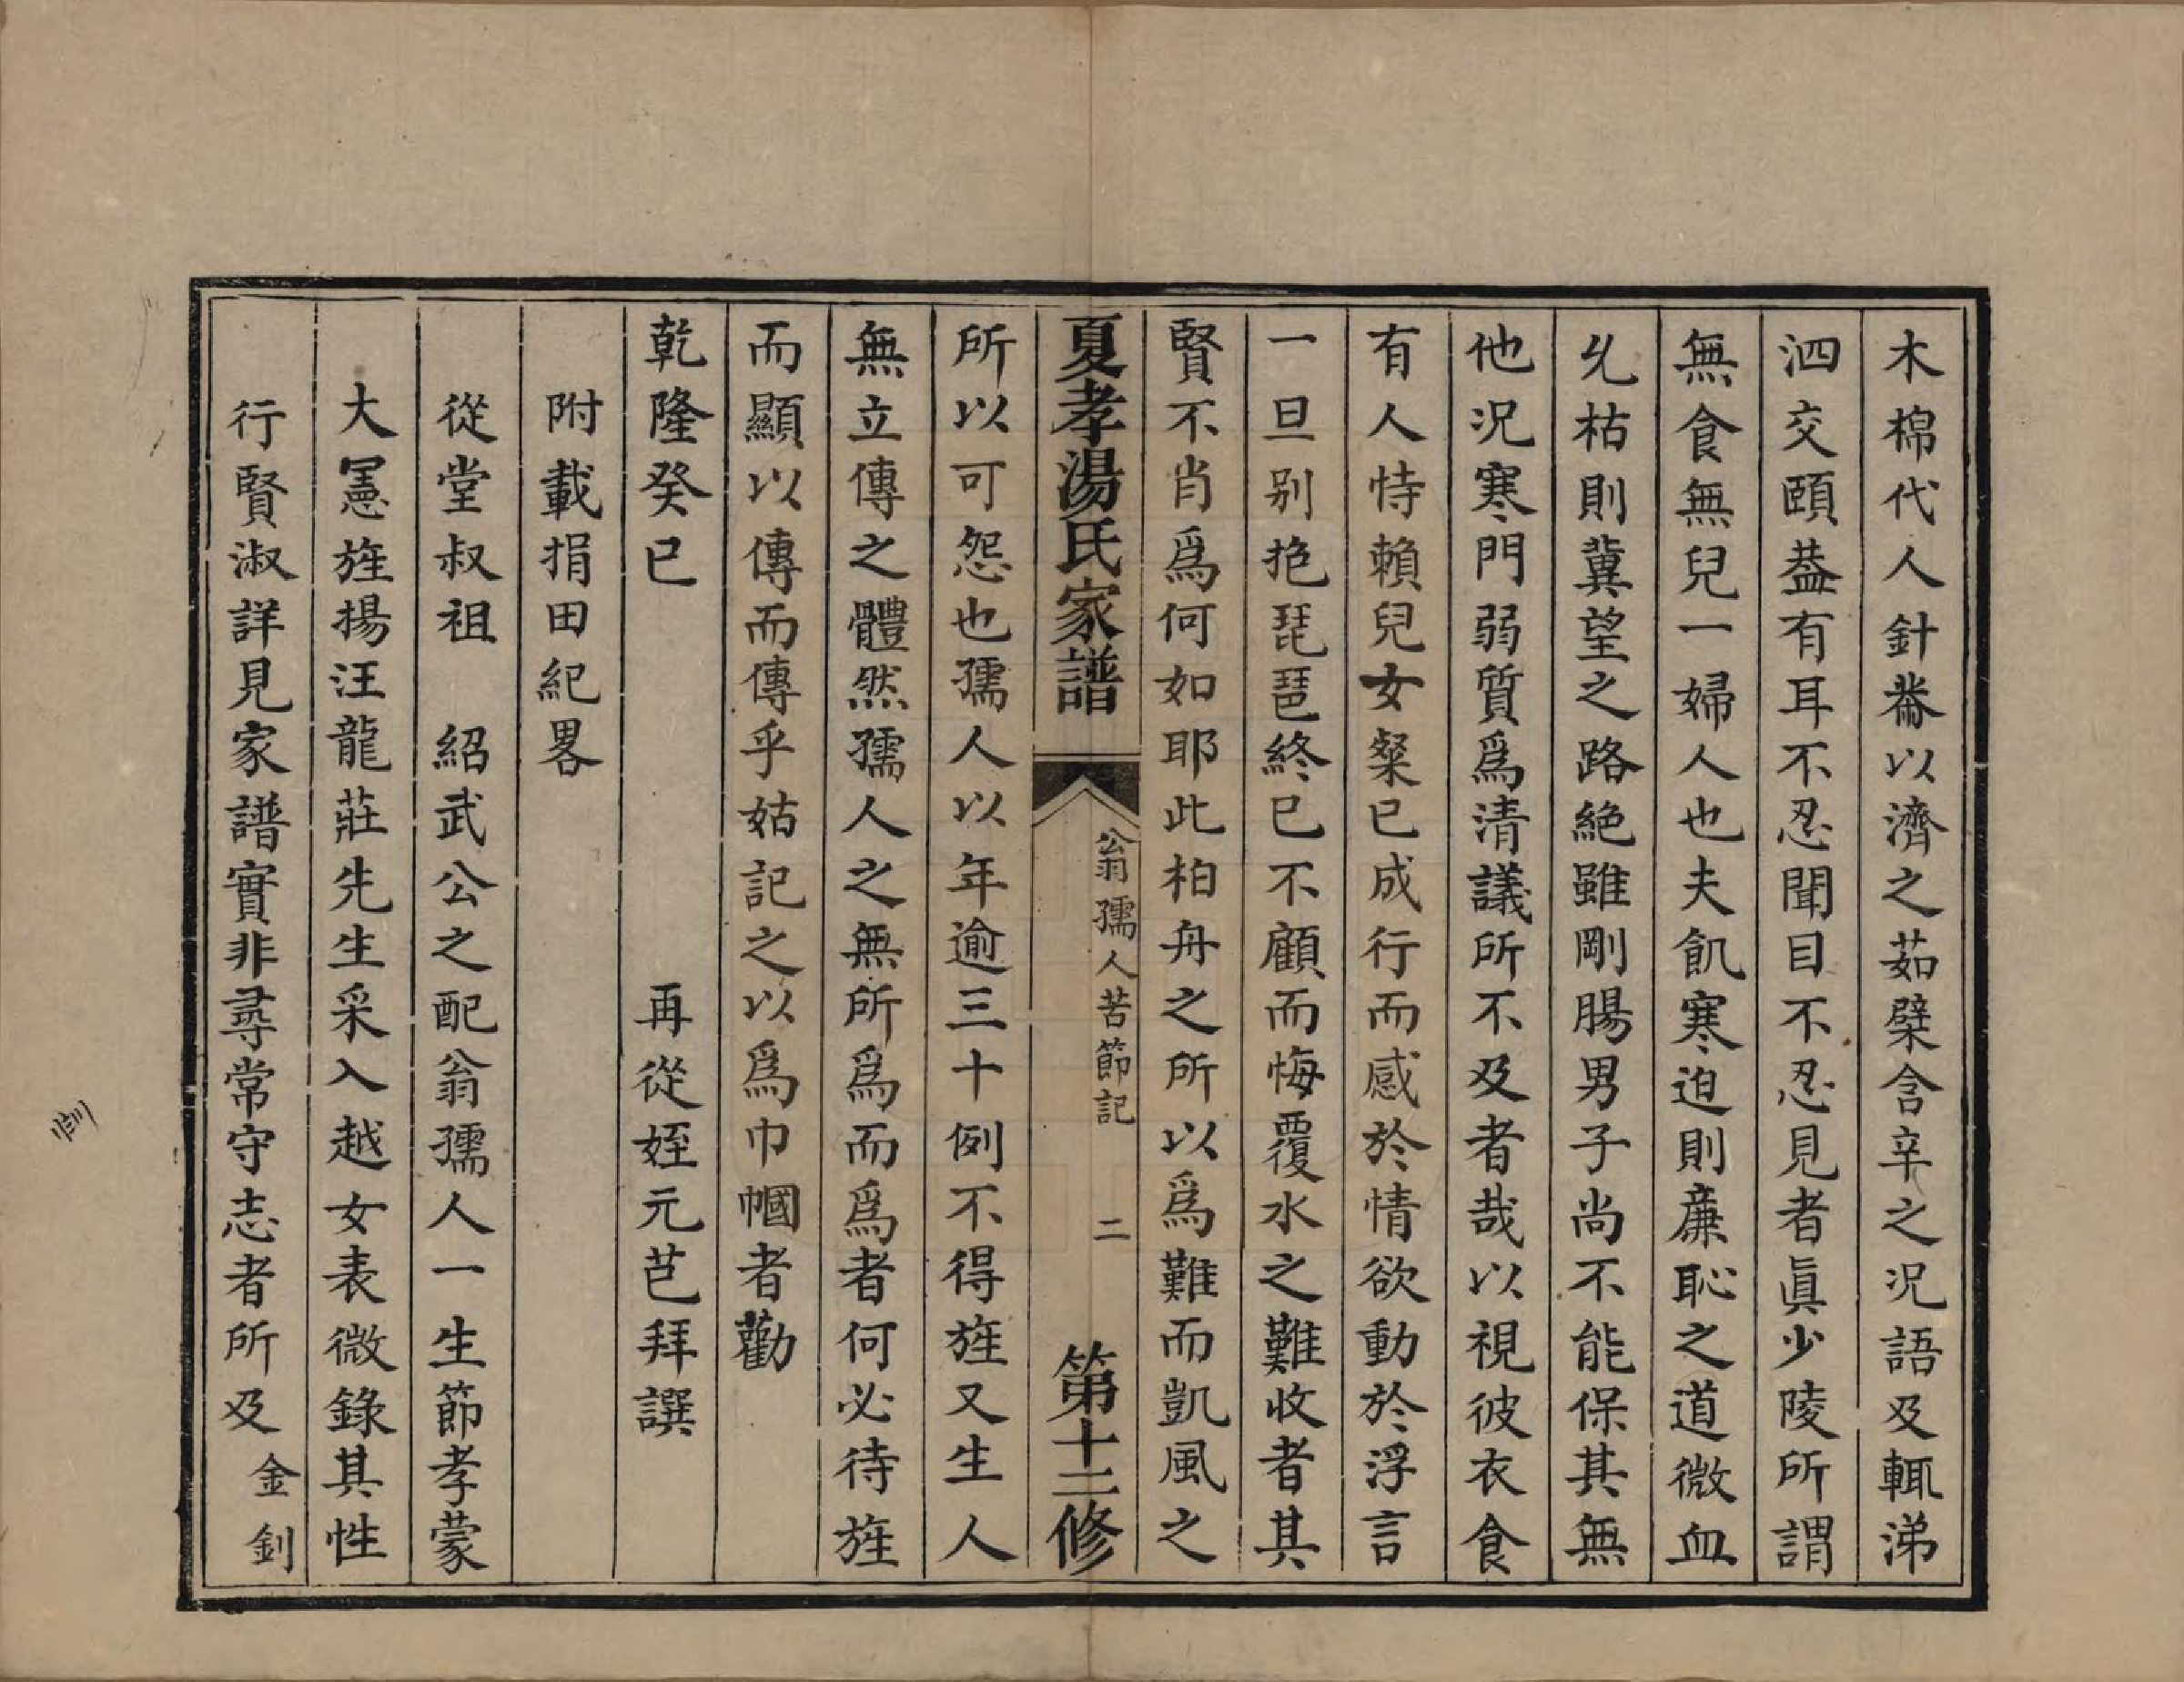 木棉代人針黹以濟之茹櫱含辛之况語及輒涕
泗交頤葢有耳不忍聞目不忍見者眞少陵所謂
無食無兒一婦人也夫飢寒迫則廉恥之道微血
乆枯則冀望之路絶雖剛腸男子尚不能保其無
他况寒門弱質爲清議所不及者哉以視彼衣食
有人恃賴兒女粲已成行而感於情欲動於浮言
一旦别抱琵琶終已不顧而悔覆水之難收者其
賢不肖爲何如耶此柏舟之所以爲難而凱風之
夏孝湯氏家譜 翁孺人苦節記 二 第十二修
所以可怨也孺人以年逾三十例不得旌又生人
無立傳之體然孺人之無所爲而爲者何必待旌
而顯以傳而傳乎姑記之以爲巾幗者勸
乾隆癸已 再從姪元芑拜譔
附載捐田紀畧
從堂叔祖 紹武公之配翁孺人一生節孝蒙
大憲旌揚汪龍莊先生采入越女表微錄其性
行賢淑詳見家譜實非尋常守志者所及 金釗